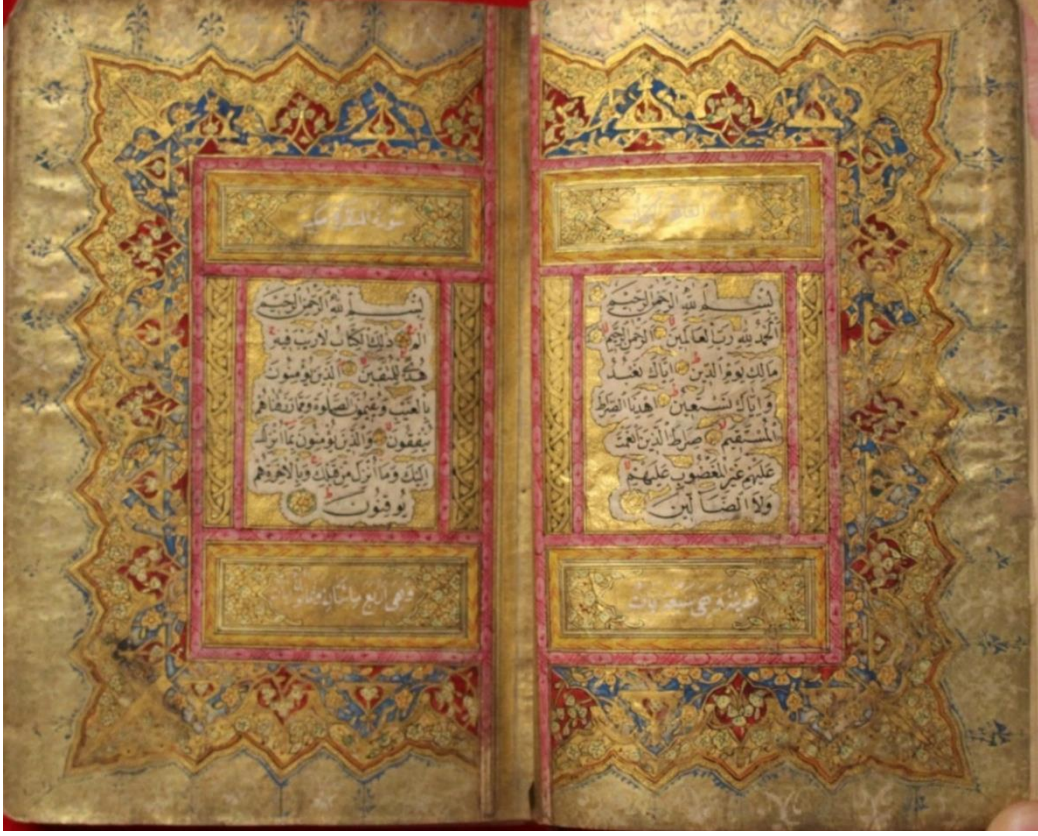 سورة
بِسْمِ اللهِ الرَّحْمٰنِ الرَّحِيمِ
اَلْحَمْدُ لِلّٰهِ رَبِّ الْعَالَمِينَ الرَّحْمٰنِ الرَّحِيمِ
مَالِكِ يَوْمِ الدِّينِ اِيَّاكَ نَعْبُدُ
وَاِيَّاكَ نَسْتَعِينُ اِهْدِنَا الصِّرَاطَ
الْمُسْتَقِيمَ صِرَاطَ الَّذِينَ اَنْعَمْتَ
عَلَيْهِمْ غَيْرِ الْمَغْضُوبِ عَلَيْهِمْ
وَلَا الضَّالِّينَ
وهي سبع آيات
سورة البقرة
بِسْمِ اللهِ الرَّحْمٰنِ الرَّحِيمِ
الم ذٰلِكَ الْكِتَابُ لَارَيْبَ فِيهِ
هُدًى لِلْمُتَّقِينَ اَلَّذِينَ يُؤْمِنُونَ
بِالْغَيْبِ وَيُقِيمُونَ الصَّلٰوةَ وَمِمَّا رَزَقْنَاهُمْ
يُنْفِقُونَ وَالَّذِينَ يُؤْمِنُونَ بِمَا اُنْزِلَ
اِلَيْكَ وَمَا اُنْزِلَ مِنْ قَبْلِكَ وَبِالْاٰخِرَةِ هُمْ
يُوقِنُونَ
وهي